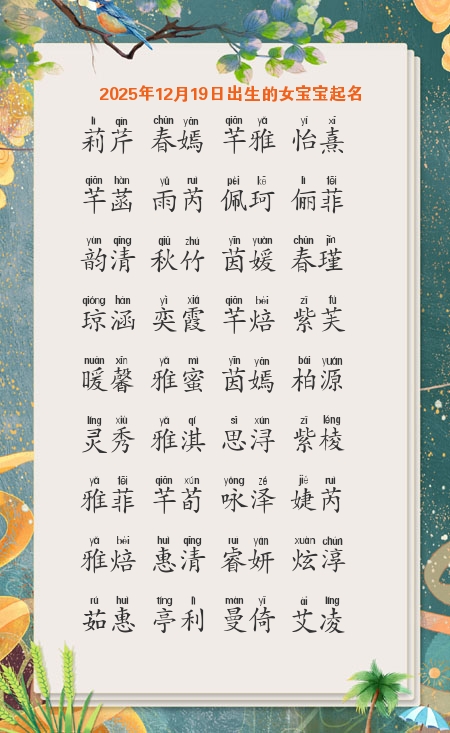 2025年12月19日出生的女宝宝起名
lì qín chūn yān qiān yǎ yí xī
莉芹 春嫣 芊雅 怡熹
qiān hàn yǔ ruì pèi kē lì fēi
芊菡 雨芮 佩珂 俪菲
yùn qīng qiū zhú yīn yuán chūn jǐn
韵清 秋竹 茵媛 春瑾
qióng hán yì xiá qiān bèi zǐ fú
琼涵 奕霞 芊焙 紫芙
nuǎn xīn yǎ mì yīn yān bǎi yuán
暖馨 雅蜜 茵嫣 柏源
líng xiù yǎ qí sī xún zǐ léng
灵秀 雅淇 思浔 紫棱
yǎ fēi qiān xún yǒng zé jié ruì
雅菲 芊荀 咏泽 婕芮
yǎ bèi huì qīng ruì yán xuàn chún
雅焙 惠清 睿妍 炫淳
rú huì tíng lì màn yǐ ài líng
茹惠 亭利 曼倚 艾凌